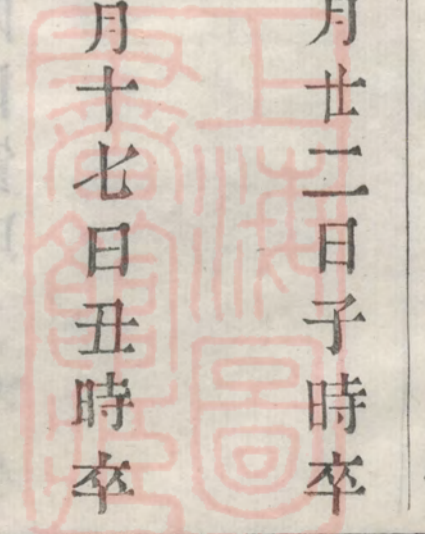 月廿二日子時卒
月十七日丑時卒
上海圖
書館藏